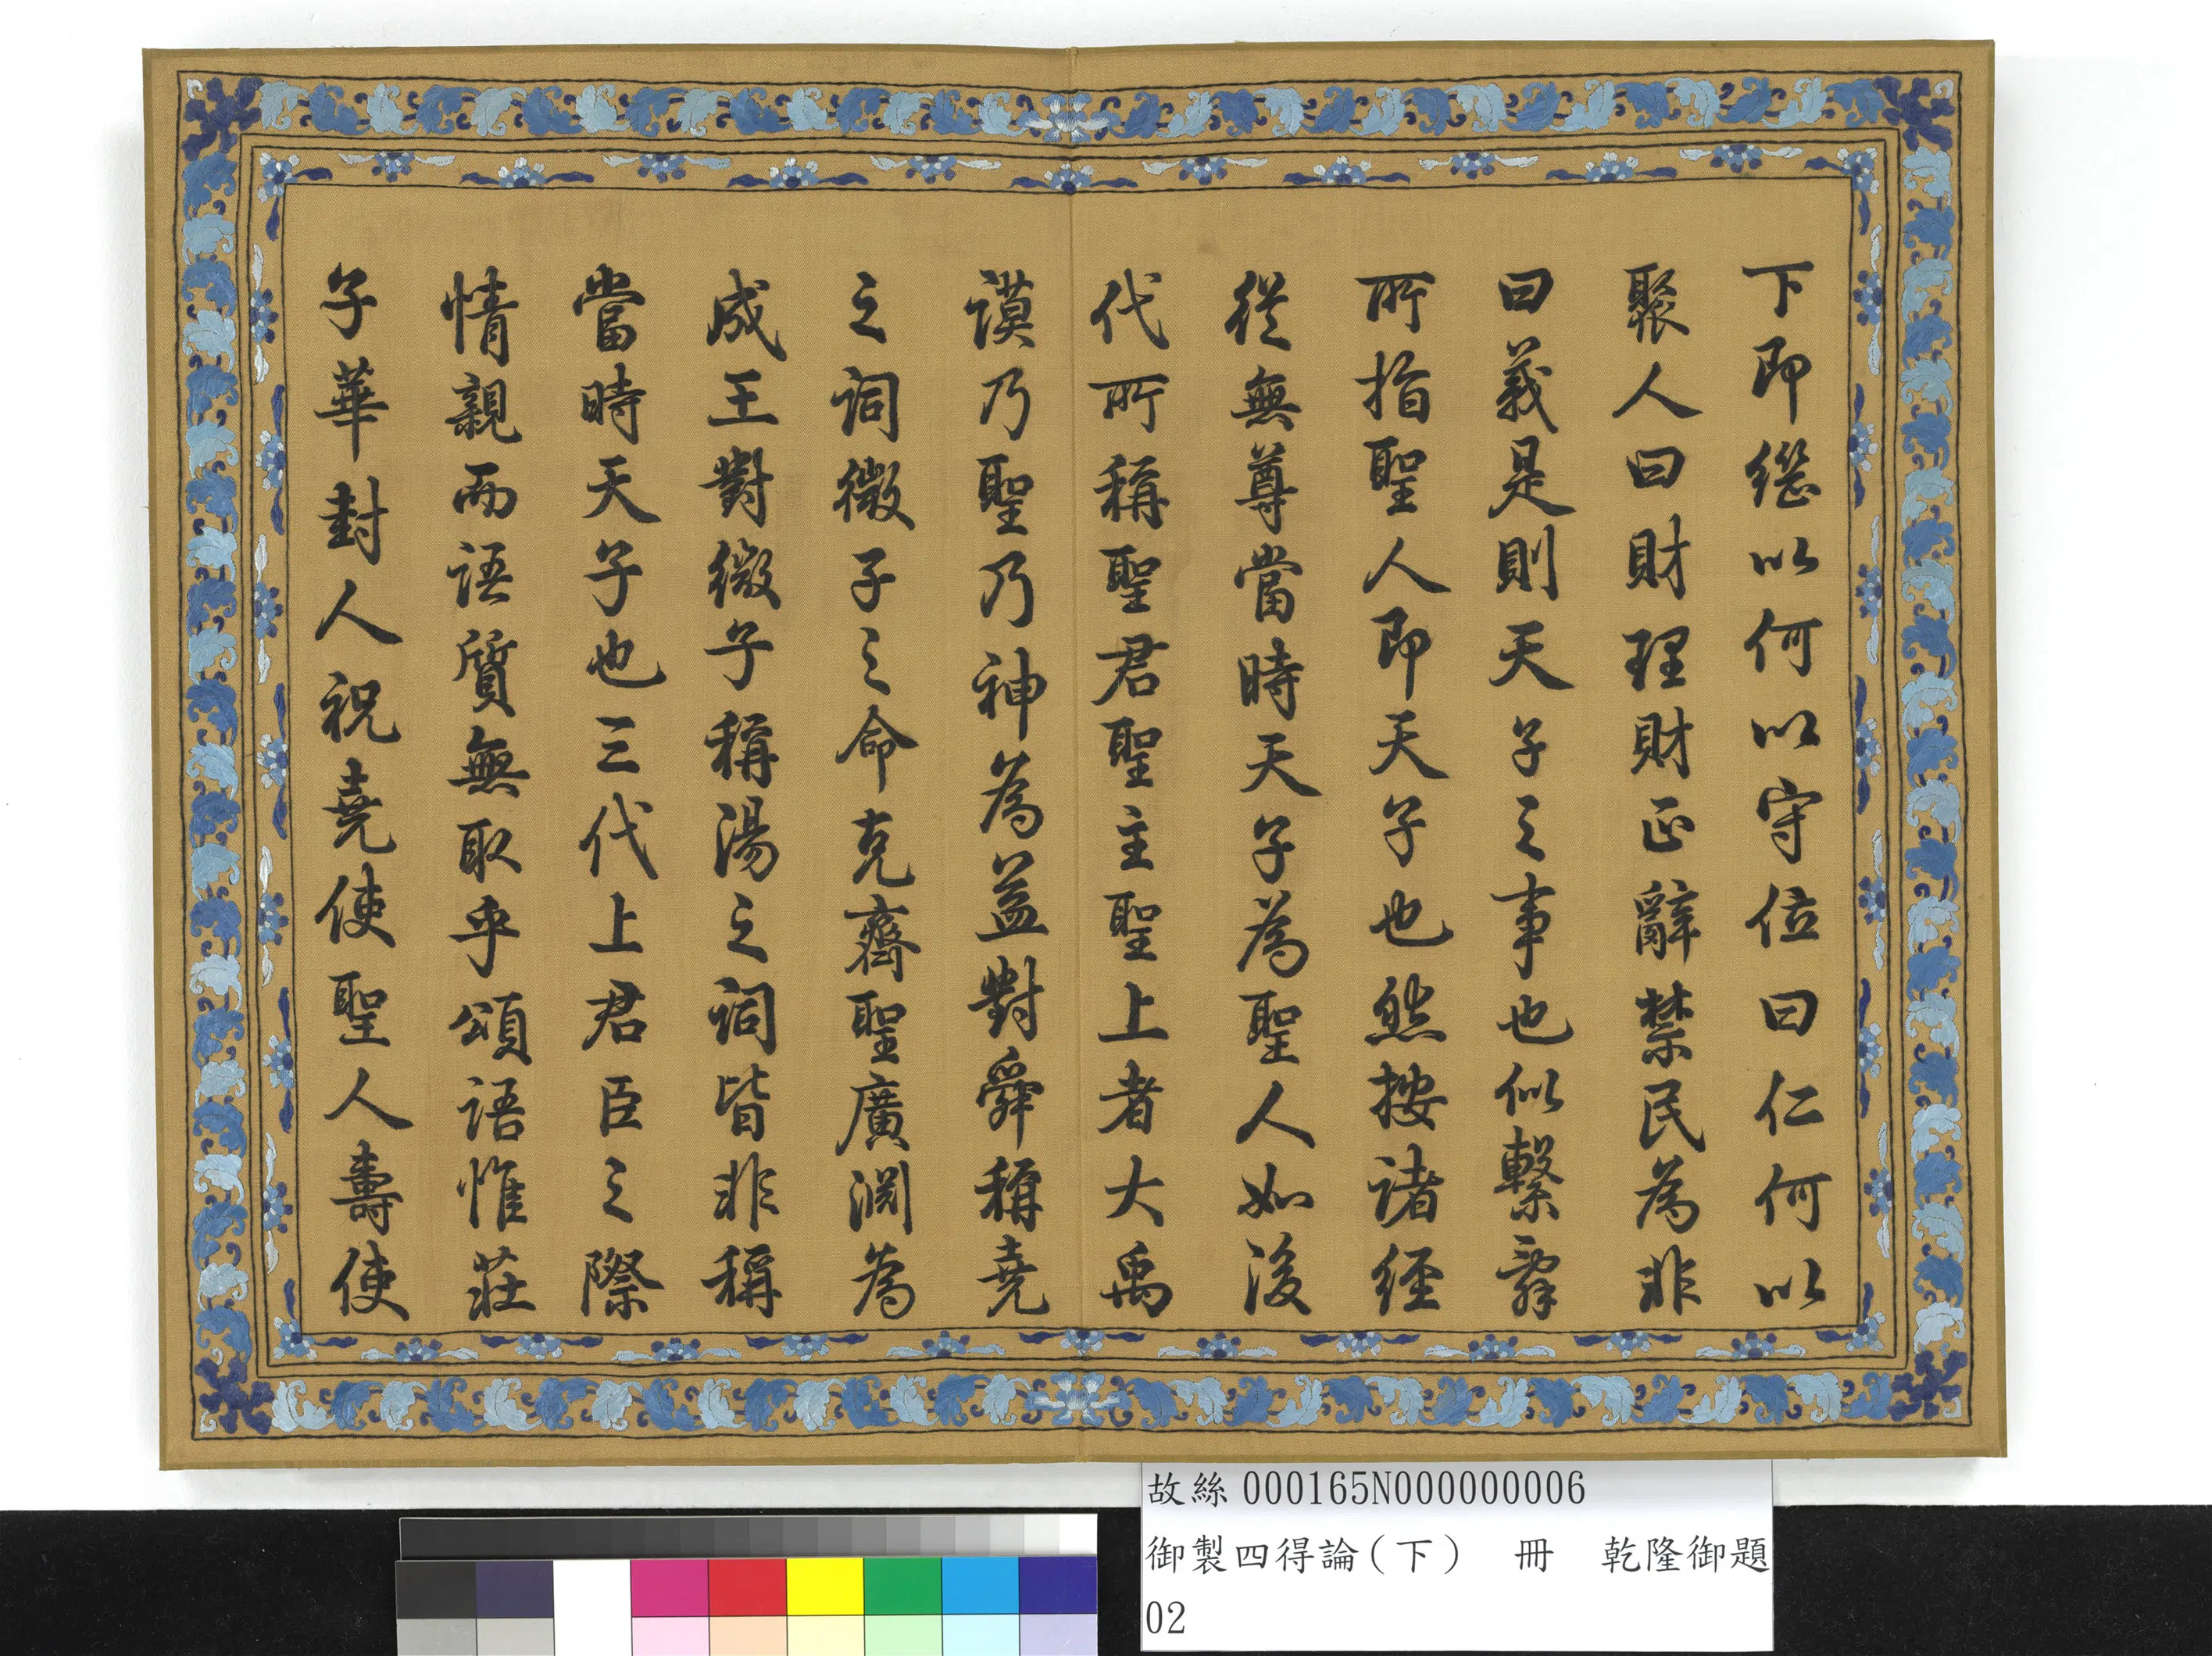 下即繼以何以守位曰仁何以
聚人曰財理財正辭禁民為非
曰義是則天子之事也似繫辭
所指聖人即天子也然按諸經
從無尊當時天子為聖人如後
代所稱聖君聖主聖上者大禹
謨乃聖乃神為益對舜稱堯
之詞微子之命克齊聖廣淵為
成王對微子稱湯之詞皆非稱
當時天子也三代上君臣之際
情親而語質無取乎頌語惟莊
子華封人祝堯使聖人壽使
故絲000165N000000006
御製四得論(下) 冊 乾隆御題
02